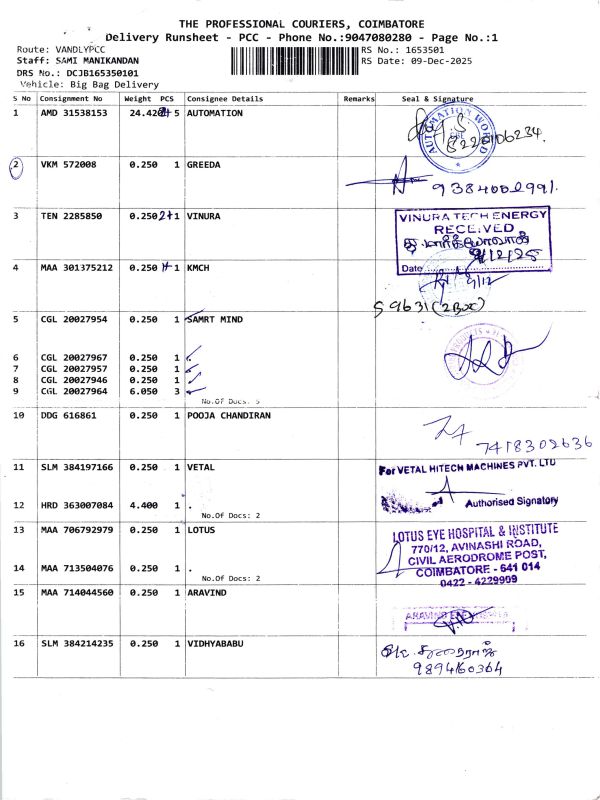 THE PROFESSIONAL COURIERS, COIMBATORE
Delivery Runsheet - PCC - Phone No.:9047080280 - Page No.:1
Route: VANDLYPCC RS No.: 1653501
Staff: SAMI MANIKANDAN RS Date: 09-Dec-2025
DRS No.: DCJB165350101
Vehicle: Big Bag Delivery
S No Consignment No Weight PCS Consignee Details Remarks Seal & Signature
1 AMD 31538153 24.420 5 AUTOMATION
AUTOMATION WORLD
2 VKM 572008 0.250 1 GREEDA
9384002991.
3 TEN 2285850 0.250 2+1 VINURA
VINURA TECH ENERGY
RECEIVED
9/12/25
Date
4 MAA 301375212 0.250 1 KMCH
9/12
S 9631 (2Box)
5 CGL 20027954 0.250 1 SAMRT MIND
6 CGL 20027967 0.250 1 .
7 CGL 20027957 0.250 1 .
8 CGL 20027946 0.250 1 .
9 CGL 20027964 6.050 3 .
No.Of Docs: 5
10 DDG 616861 0.250 1 POOJA CHANDIRAN
7418302636
11 SLM 384197166 0.250 1 VETAL
For VETAL HITECH MACHINES PVT. LTD
Authorised Signatory
12 HRD 363007084 4.400 1 .
No.Of Docs: 2
13 MAA 706792979 0.250 1 LOTUS
LOTUS EYE HOSPITAL & INSTITUTE
770/12, AVINASHI ROAD,
CIVIL AERODROME POST,
COIMBATORE - 641 014
0422 - 4229909
14 MAA 713504076 0.250 1 .
No.Of Docs: 2
15 MAA 714044560 0.250 1 ARAVIND
ARAVIND
16 SLM 384214235 0.250 1 VIDHYABABU
9894160364